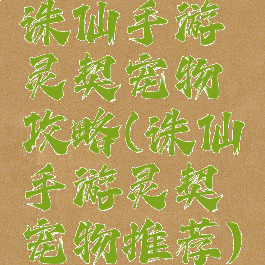 诛仙手游
灵契宠物
攻略(诛仙
手游灵契
宠物推荐)